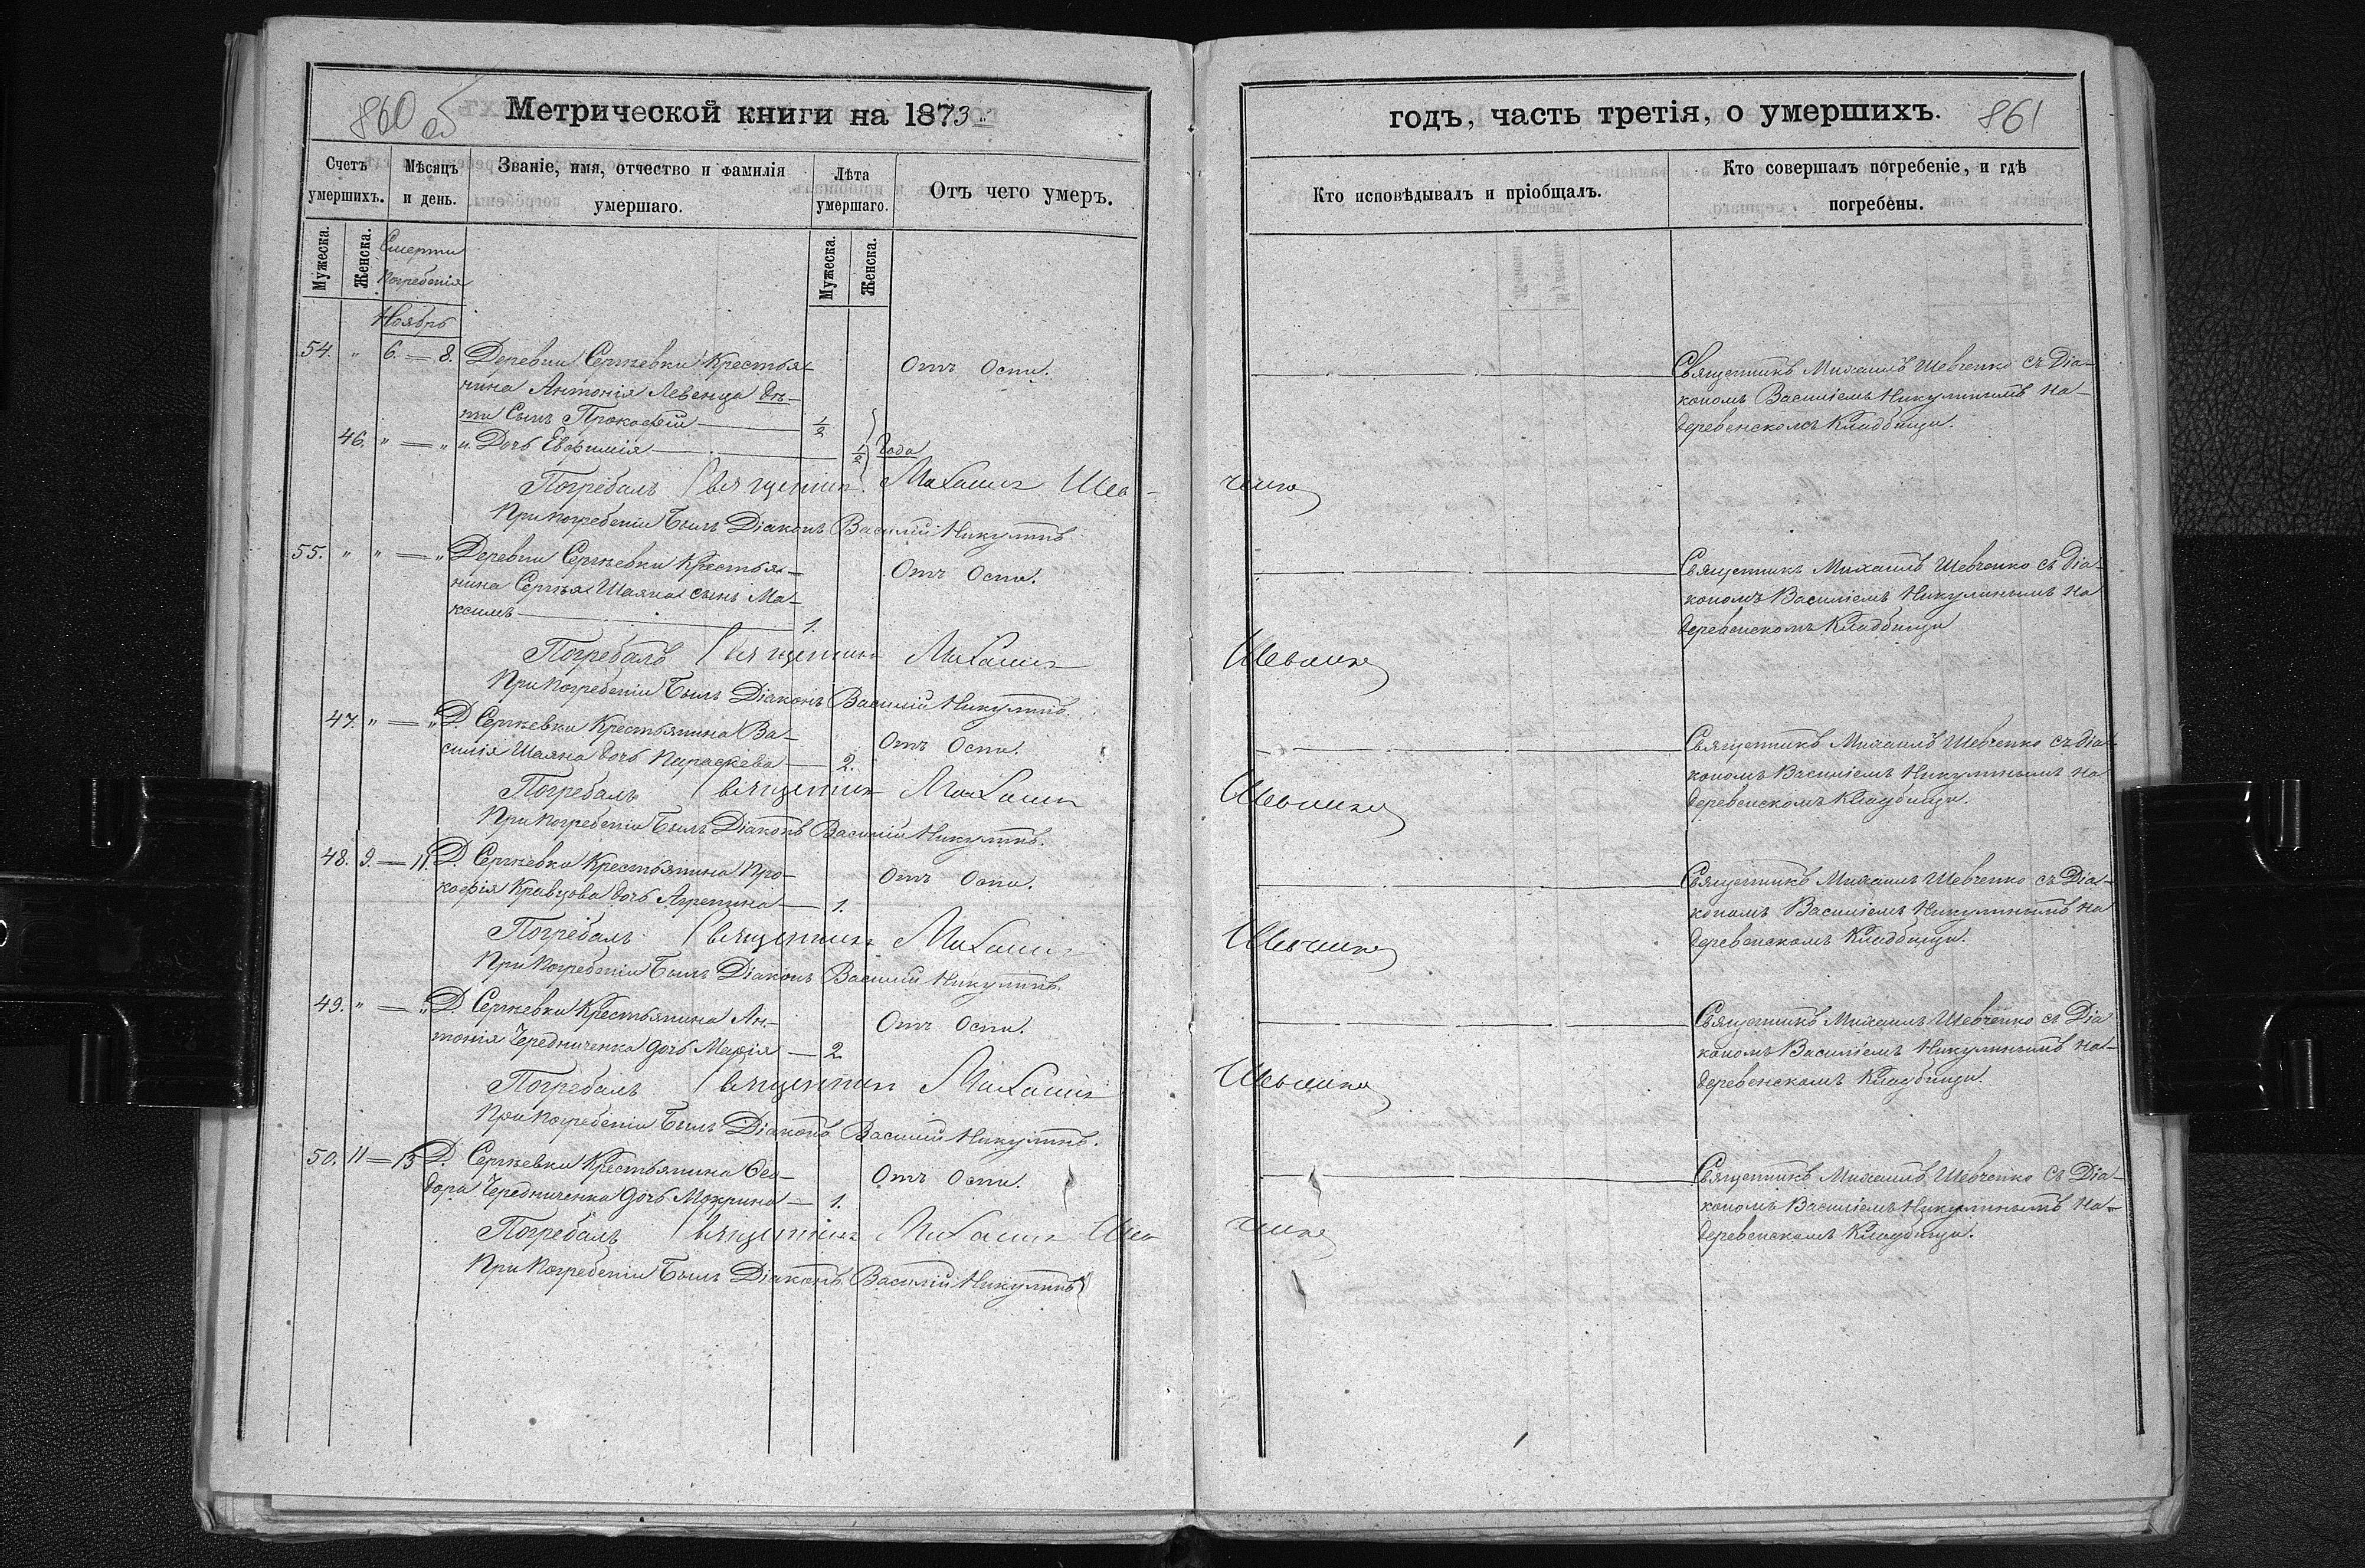 860 об
Метрической книги на 1873
годъ, часть третія, о умершихъ.
861
Счетъ умершихъ.
Мѣсяцъ и день.
Званіе, имя, отчество и фамилія умершаго.
Лѣта умершаго.
Отъ чего умеръ.
Кто исповѣдывалъ и пріобщалъ.
Кто совершалъ погребеніе, и гдѣ погребены.
Мужеска.
Женска.
Смерти
погребенія
Мужеска.
Женска.
Ноябрь
54. " 6. — 8. Деревни Сергѣевки Крестья-
нина Антонія Левенца дѣ-
ти Сынъ Прокофій — 1/2
Отъ Оспи.
46. " — " и Дочь Евфимія — 1/2 Года
Священникъ Михаилъ Шевченко съ Діа-
кономъ Василіемъ Никулинымъ на
деревенскомъ Кладбищи.
Погребалъ Священник Михаилъ Шев-
ченко
При погребеніи Былъ Діаконъ Василій Никулинъ
55. " " — " Деревни Сергѣевки Крестья-
нина Сергѣя Шаяна сынъ Ма-
ксимъ — 1.
Отъ Оспи.
Священникъ Михаилъ Шевченко съ Діа-
кономъ Василіемъ Никулинымъ на
деревенскомъ Кладбищи
Погребалъ Священник Михаилъ
Шевченко
При погребеніи Былъ Діаконъ Василій Никулинъ.
47. " — " Д. Сергѣевки Крестьянина Ва-
силія Шаяна дочь Параскева — 2.
Отъ Оспи.
Священникъ Михаилъ Шевченко съ Діа-
кономъ Василіемъ Никулинымъ на
деревенскомъ Кладбищи.
Погребалъ Священник Михаилъ
Шевченко
При погребеніи Былъ Діаконъ Василій Никулинъ.
48. 9. — 11. Д. Сергѣевки Крестьянина Про-
кофія Кравцова дочь Агрепина — 1.
Отъ Оспи.
Священникъ Михаилъ Шевченко съ Діа-
кономъ Василіемъ Никулинымъ на
деревенскомъ Кладбищи.
Погребалъ Священник Михаилъ
Шевченко
При погребеніи Былъ Діаконъ Василій Никулинъ.
49. " — " Д. Сергѣевки Крестьянина Ан-
тонія Чередниченка дочь Марія — 2
Отъ Оспи.
Священникъ Михаилъ Шевченко съ Діа
кономъ Василіемъ Никулинымъ на-
деревенскомъ Кладбищи.
Погребалъ Священник Михаилъ
Шевченко
При погребеніи Былъ Діаконъ Василій Никулинъ.
50. 11 — 13 Д. Сергѣевки Крестьянина Ѳео-
дора Чередниченка дочь Мокрина — 1.
Отъ Оспи.
Священникъ Михаилъ Шевченко съ Діа-
кономъ Василіемъ Никулинымъ на-
деревенскомъ Кладбищи.
Погребалъ Священник Михаилъ Шев
ченко
При погребеніи Былъ Діаконъ Василій Никулинъ